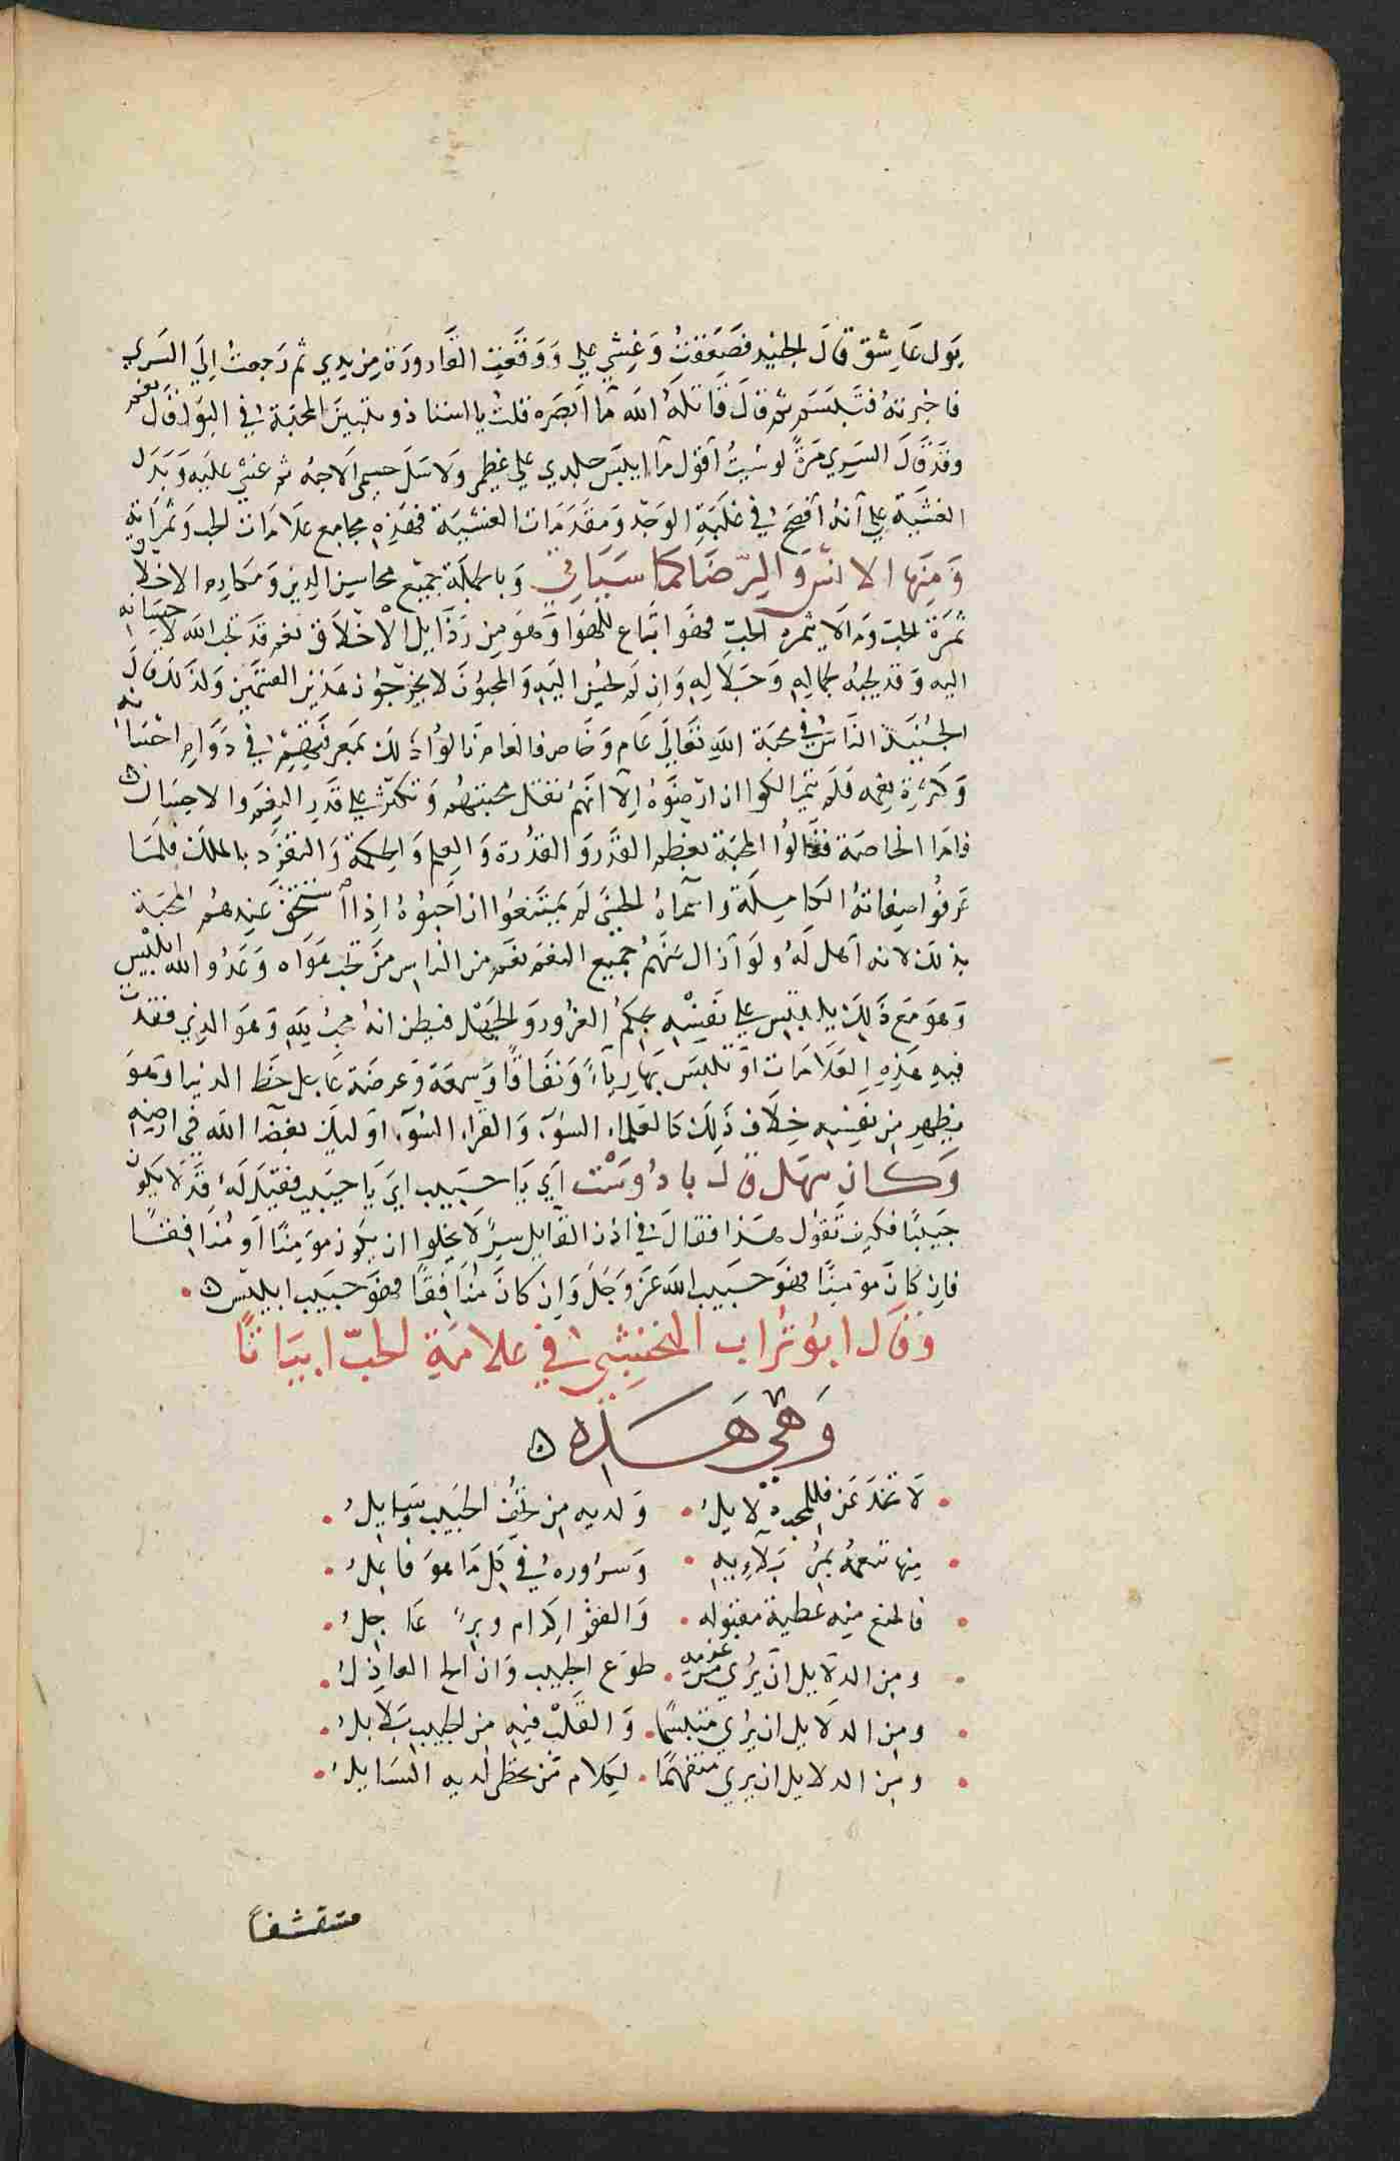 بَول عَاشِق قالَ الجنيد فصَعِقتُ وَغِشي علي وَوَقعَت القَارورَة مِن يدي ثم رَجعتُ اِلَي السَري
فاخبرتهُ فتَبسَم ثم قالَ قاتلهُ الله مَا اَبصَره قلتُ يا استاذ وتبين المحبَة في البَول قال نعم
وقد قالَ السَري مَرةً لو شيتُ اقول مَا ايبَس جلدي علي عَظمي وَلا سَل جسمي الا حبه ثم غشي عليه وَيَدل
الغشيَة علي اَنهُ اَفصَح في غلَبَةِ الوَجد وَمقَدمَات الغشيَة فهَذِه مجامع علامَات الحب وَثمراته
وَمِنها الانس وَالرِضَا كما سَيَاتي وَبالجملَة جميع محاسِن الدِين وَمَكارم الاخلاق
ثمرَة الحب ومَا لا يثمره الحبّ فهوَ اتباع للهوَا وَهوَ مِن رَذايل الاْخلاق نعم قد يحب الله لاحسَانه
اليه وَقد يحبهُ لجمالِهِ وَجَلالِهِ وَاِن لَم يحسِن اليَهِ وَالمحبوُنَ لا يخرجوُن عَن هَذين القسمَين وَلذلكَ قالَ
الجُنيَد النَاسُ في محبَة اللهِ تعَالي عَام وَخاص فالعَام نَالوُا ذلك بمَعرفتِهِم في دَوَام احسَانه
وَكثرَة نِعمه فلم يتمَالكوا ان ارضَوهُ اِلا اَنهُم تقل محبتهُم وَتكثر علي قَدرِ النِعَم والاحسَان
فامَا الخاصَة فنَالوُا المحبَة بعظم القَدر وَالقدُرة وَالعِلم وَالحِكمَة وَالتفرَد بالملك فلمَا
عَرفوُا صِفاتهُ الكَامِلَة وَاسماهُ الحسني لَم يمتنعُوا ان اَحبوُهُ اِذا استحَقَ عِندهُم المحبَة
بذلك لانه اَهل لَهُ ولَو اَزال عَنهُم جميع النعَم نعَم من الناس مَن يحب هَوَاه وَعَدُو الله ابليْس
وَهو مَع ذَلِك يلبِس علي نَفسْه بحكم الغرُور وَالجهْل فيظن انهُ محِب لِلهِ وَهوَ الذِي فقدَت
فيهِ هَذِهِ العَلامَاتِ اَو تلبَس بهَا ريَاءً وَنفَاقًا وَسمعَة وَغرضَهُ عَاجل حَظ الدنيا وَهوَ
يظهر مِن نفسِه خِلاف ذَلِكَ كالعُلمَاء السُوءِ وَالقراء السُوءِ اوَليك بغضَا الله في ارضِهِ
وَكانَ سَهل قال يا دُوسْت اَي يَا حَبيب اي يَا حَبيب فقيَل لَهُ قَد لا يَكون
حَبيبًا فكيفَ تقوُل هَذا فقالَ في اذن القَايل سِرًا لا يخلوا ان يكون موَمِنًا اَو مُنَافِقًا
فاِن كانَ موَمنًا فهوَ حَبيَب الله عَز وَجَل وَاِن كانَ مُنَافِقًا فهوَ حَبيب ابليس
وقال ابوُ تُراب النخشبي في علامَةِ الحبّ ابيَاتًا
وَهي هَذِه
لَا تخدَعَن فللمحِب دَلايلُ وَلديه مِن تحَفِ الحبَيب وَسَايلُ
مِنها تنعمُهُ بمُرِ بَلاءِيهِ وَسرُورهُ في كل مَا هوَ فاعِلُ
فالمنع مِنه عَطية مقبولَه وَالفقر اِكرَام وبِرٌ عَاجِلُ
ومِن الدلايل اَن يُري مِن عَزمه طوَع الحَبيب وَان اَلح العَاذِلُ
ومِن الدلايل ان يُري متبسمًا وَالقَلبُ فيهِ من الحَبيب بَلابلُ
ومِن الدلايل ان يري متفهمًا لِكلام مَن يحظي لَديه السَايلُ
متقشفاً